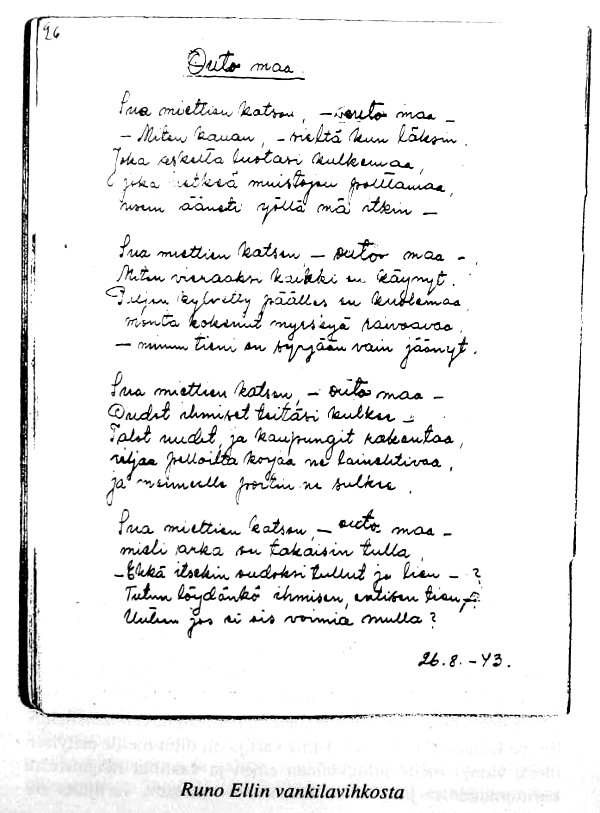 26
Outo maa.
Sua miettien katson, – outo maa –
– Miten kauan, – sieltä kun läksin.
Joka askelta luotasi kulkemaa,
joka hetkeä muistojen polttamaa,
usein ääneti yöllä mä itkin –
Sua miettien katson, – outo maa –,
Miten vieraaksi kaikki on käynyt.
Paljon kylvetty päälles on kuolemaa,
monta kokenut myrskyä raivoavaa,
– minun tieni on syrjään vain jäänyt.
Sua miettien katson, – outo maa –
Oudot ihmiset teitäsi kulkee –
Talot uudet, ja kaupungit rakentaa,
viljaa pelloilta korjaa ne lainehtivaa,
ja menneelle portin ne sulkee.
Sua miettien katson, – outo maa –
mieli arka on takaisin tulla,
– Ehkä itsekin oudoksi tullut jo lien – ?
Tutun löydänkö ihmisen, entisen tien, – ?
Uuteen jos ei ois voimia mulla?
26.8.-43.
Runo Ellin vankilavihkosta